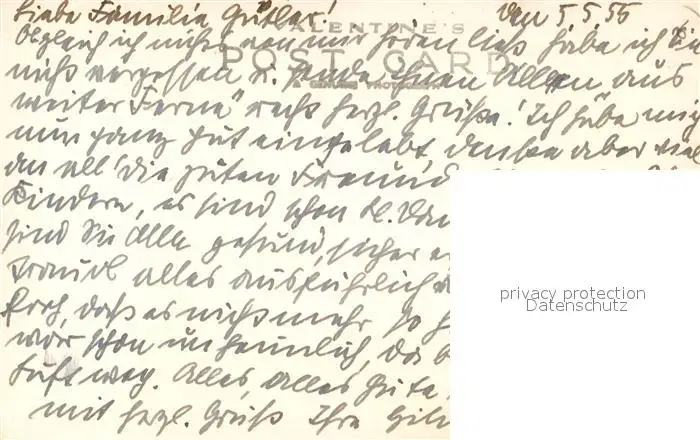 Liebe Familie Gütler! den 5.5.55
VALENTINE'S
POST CARD
Obgleich ich nichts von mir hören ließ habe ich Sie
nicht vergessen u. sende Ihnen Allen „aus
weiter Ferne" recht herzl. Grüße! Ich habe mich
nun ganz gut eingelebt, denke aber viel
an all' die guten Freund
Kindern, es sind schon kl.
sind Sie Alle gesund, sicher
Traudl alles ausführlich
froh, daß es nicht mehr so
war schon unheimlich, da
Luft weg. Alles, alles Gute,
mit herzl. Gruß Ihre
privacy protection
Datenschutz